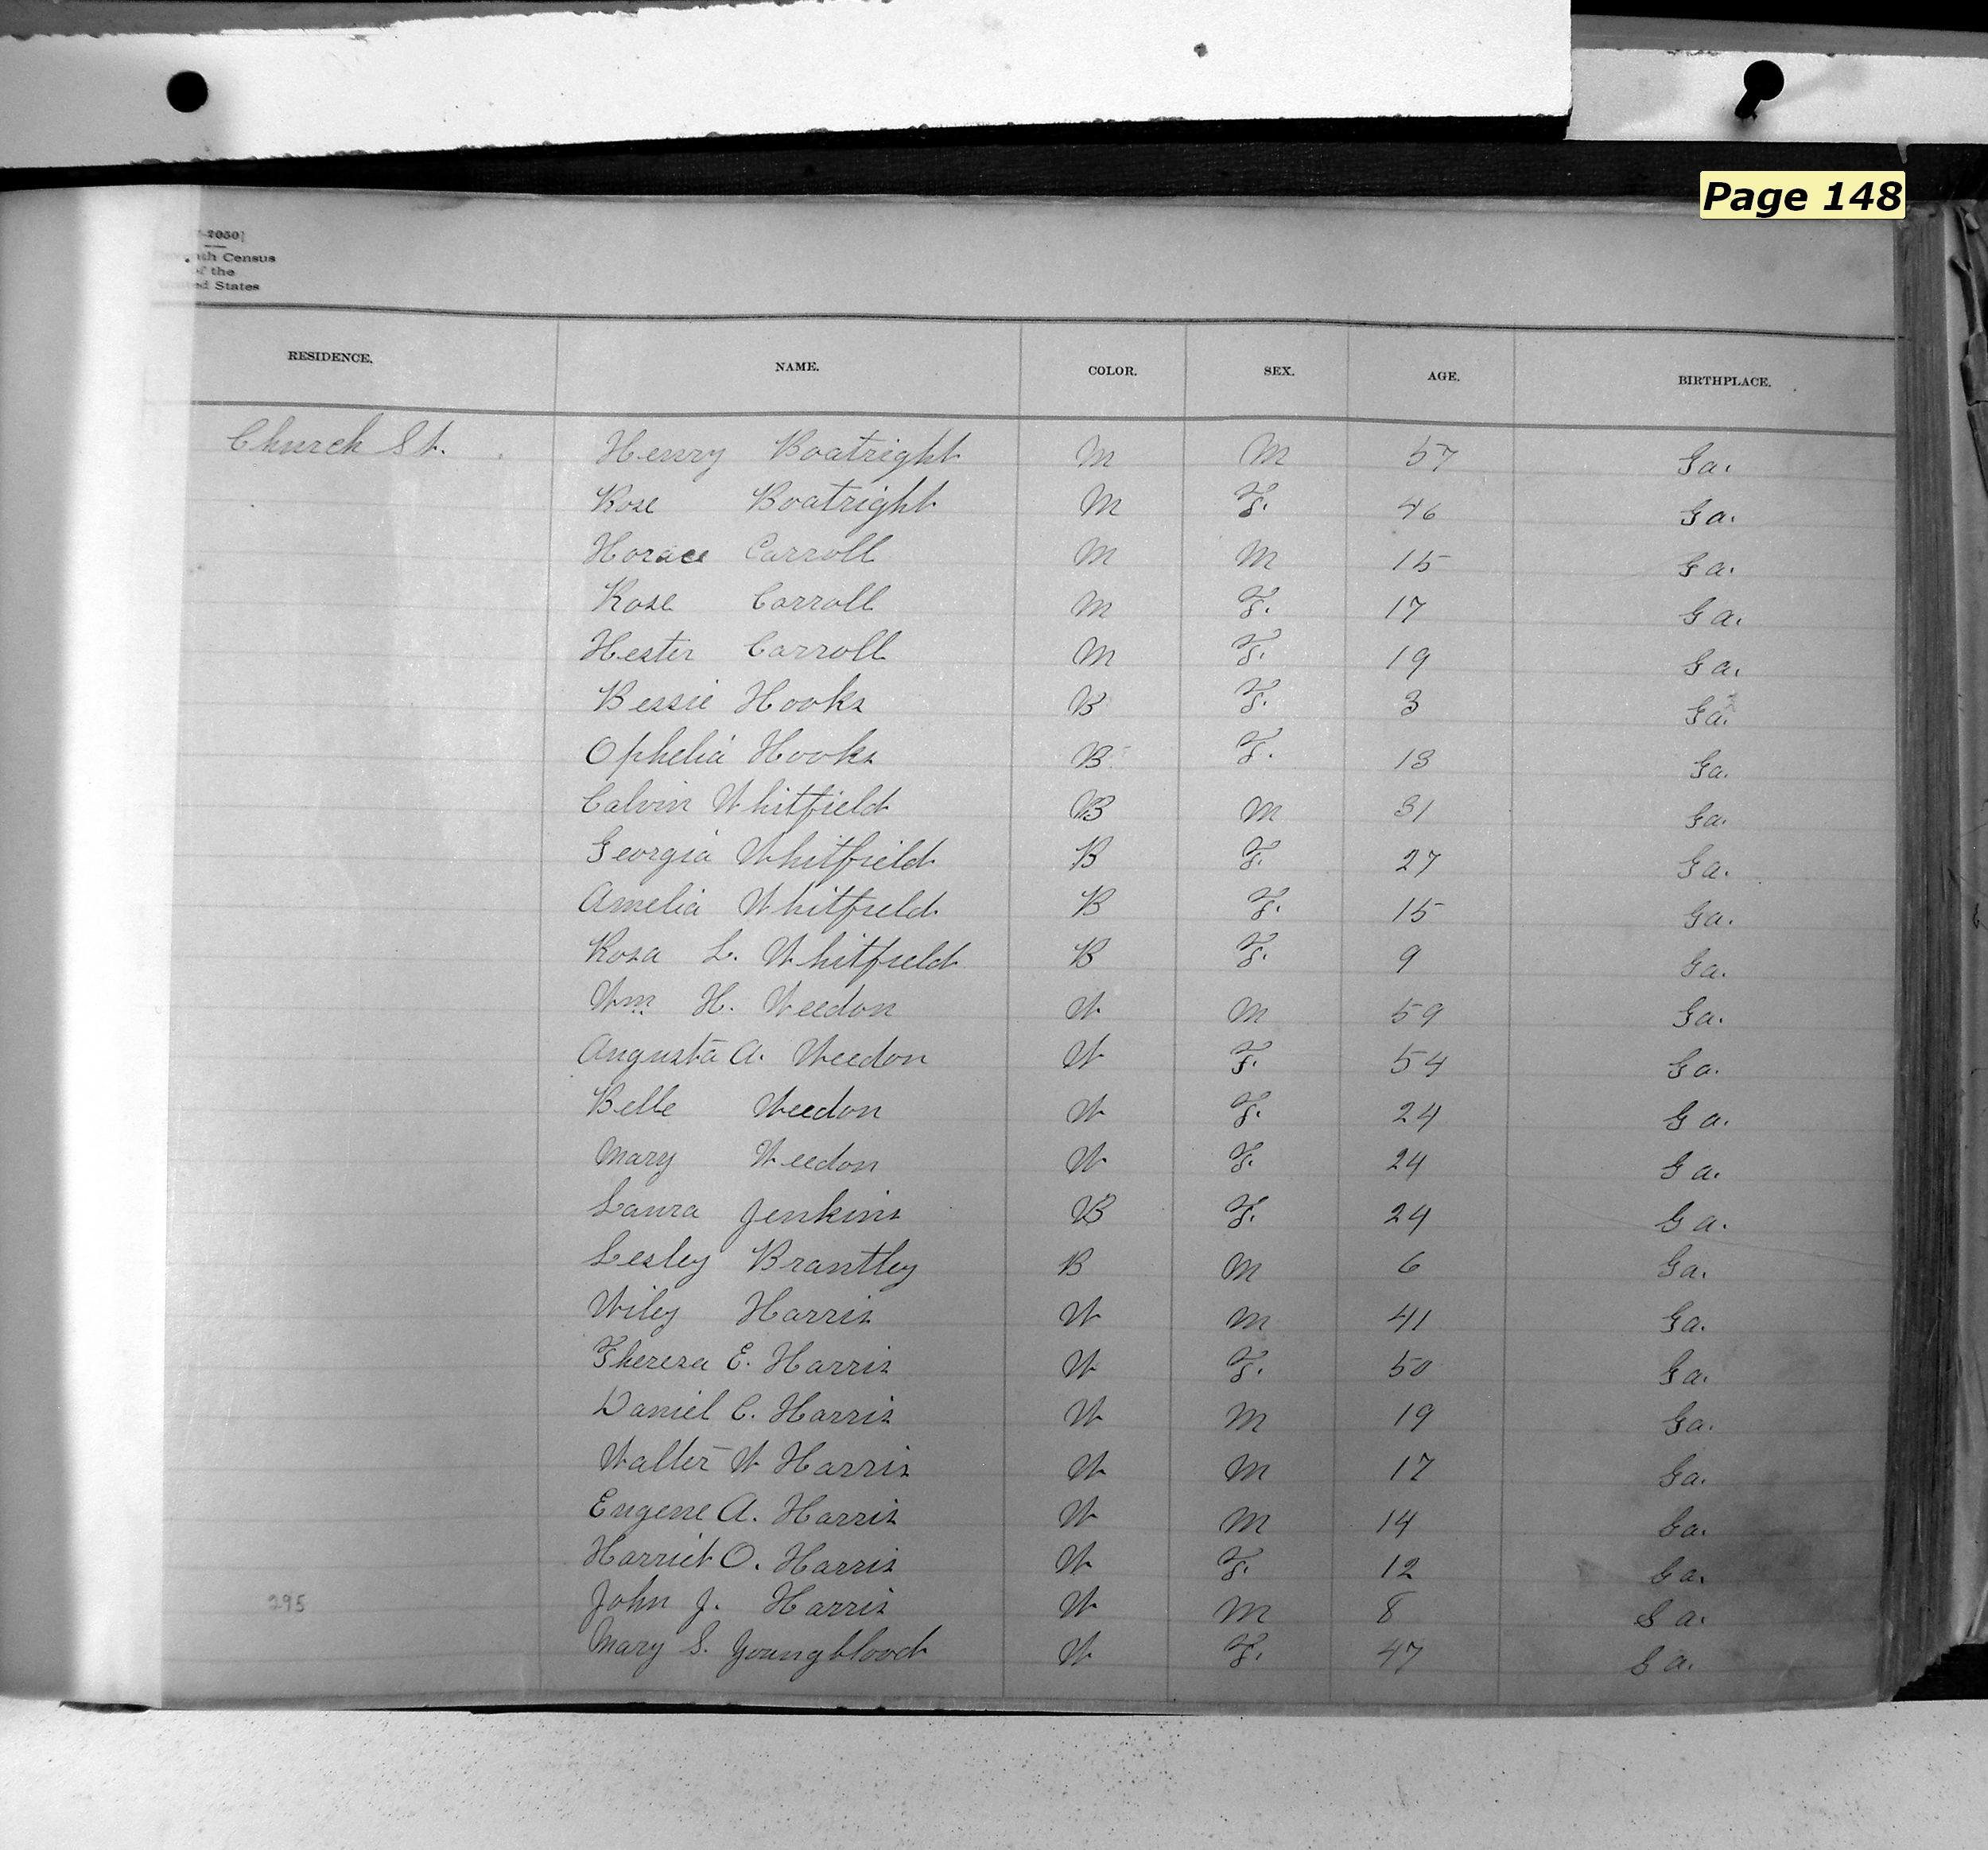 Page 148
-2050]
th Census
of the
ed States
RESIDENCE. NAME. COLOR. SEX. AGE. BIRTHPLACE.
Church St. Henry Boatright M M 57 Ga.
Rose Boatright M F. 46 Ga.
Horace Carroll M M 15 Ga.
Rose Carroll M F. 17 Ga.
Hester Carroll M F. 19 Ga.
Bessie Hooks B F. 3 Ga.
Ophelia Hooks B F. 13 Ga.
Calvin Whitfield B M 31 Ga.
Georgia Whitfield B F. 27 Ga.
Amelia Whitfield B F. 15 Ga.
Rosa L. Whitfield B F. 9 Ga.
Wm. H. Weedon W M 59 Ga.
Augusta A. Weedon W F. 54 Ga.
Belle Weedon W F. 24 Ga.
Mary Weedon W F. 24 Ga.
Laura Jenkins B F. 24 Ga.
Lesley Brantley B M 6 Ga.
Wiley Harris W M 41 Ga.
Theresa E. Harris W F. 50 Ga.
Daniel C. Harris W M 19 Ga.
Walter W Harris W M 17 Ga.
Eugene A. Harris W M 14 Ga.
Harriet O. Harris W F. 12 Ga.
295 John J. Harris W M 8 Ga.
Mary S. Youngblood W F. 47 Ga.